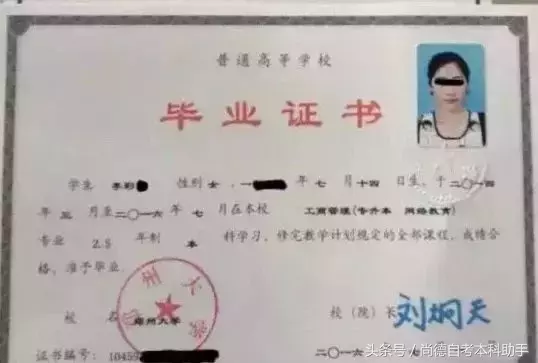 普通高等学校
毕业证书
学生 李彩 性别 女，一 年 七 月 十四 日生，于 二〇一四
年 三 月至 二〇一六 年 七 月在本校 工商管理(专升本 网络教育)
专业 2.5 年制 本 科学习，修完教学计划规定的全部课程，成绩合
格，准予毕业。
校 名 郑州大学 校（院）长 刘炯天
证书编号：10459
二〇一六 年 七
头条号 / 尚德自考本科助手